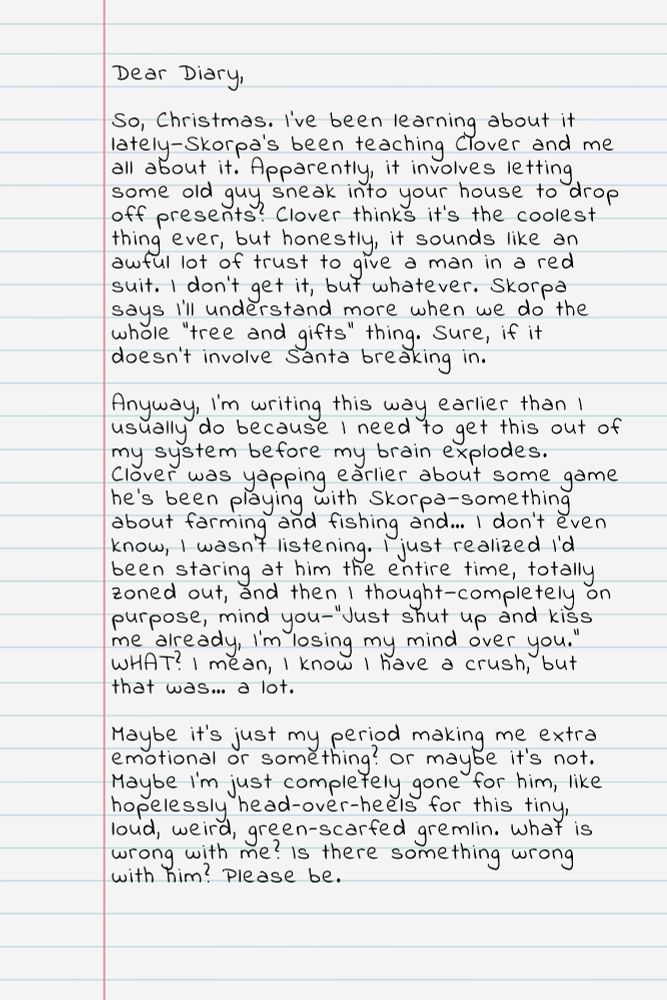 Dear Diary,
So, Christmas. I've been learning about it
lately-Skorpa's been teaching Clover and me
all about it. Apparently, it involves letting
some old guy sneak into your house to drop
off presents? Clover thinks it's the coolest
thing ever, but honestly, it sounds like an
awful lot of trust to give a man in a red
suit. I don't get it, but whatever. Skorpa
says I'll understand more when we do the
whole "tree and gifts" thing. Sure, if it
doesn't involve Santa breaking in.
Anyway, I'm writing this way earlier than I
usually do because I need to get this out of
my system before my brain explodes.
Clover was yapping earlier about some game
he's been playing with Skorpa-something
about farming and fishing and... I don't even
know, I wasn't listening. I just realized I'd
been staring at him the entire time, totally
zoned out, and then I thought-completely on
purpose, mind you-"Just shut up and kiss
me already, I'm losing my mind over you."
WHAT? I mean, I know I have a crush, but
that was... a lot.
Maybe it's just my period making me extra
emotional or something? Or maybe it's not.
Maybe I'm just completely gone for him, like
hopelessly head-over-heels for this tiny,
loud, weird, green-scarfed gremlin. What is
wrong with me? Is there something wrong
with him? Please be.